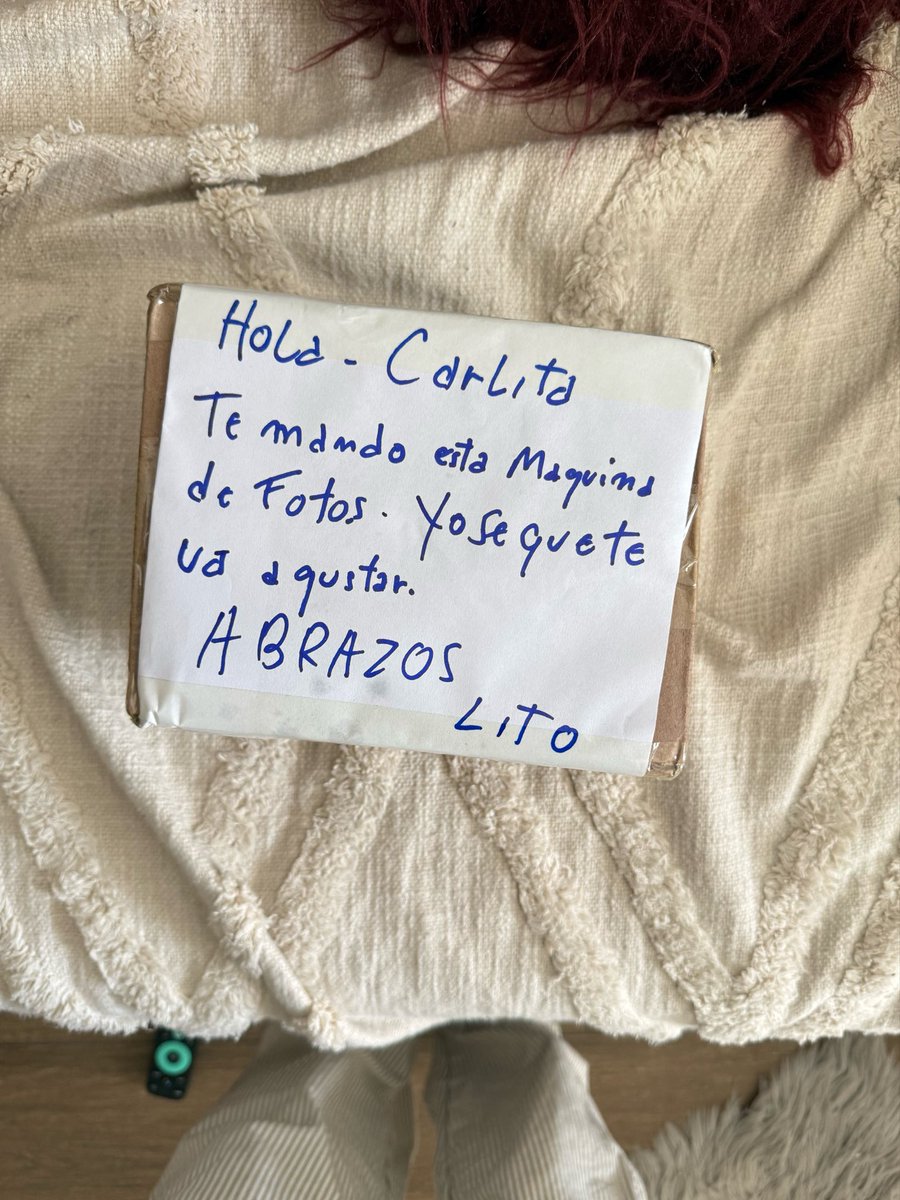 Hola - Carlita
Te mando esta Maquina
de Fotos. Yo se que te
va a gustar.
ABRAZOS
LITO